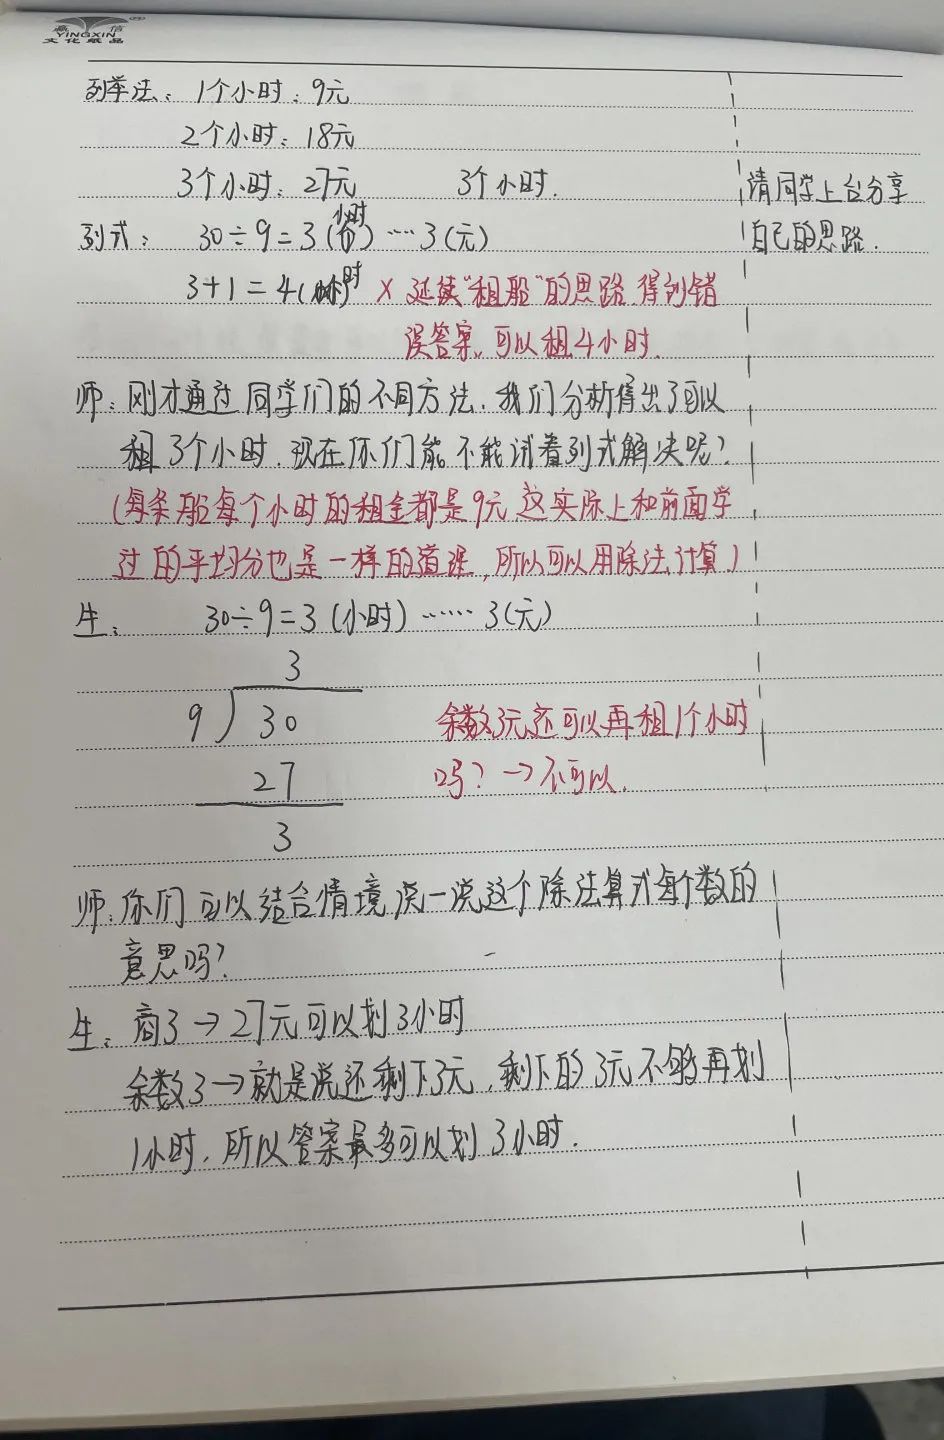 嬴信
YINGXIN
文化纸品
列举法：1个小时：9元
2个小时：18元
3个小时：27元 3个小时.
请同学上台分享
自己的思路.
列式： 30÷9=3(小时)……3(元)
3+1=4(小时) × 延续“租船”的思路 得到错
误答案，可以租4小时.
师：刚才通过同学们的不同方法，我们分析得出了可以
租3个小时，现在你们能不能试着列式解决呢？
(每条船每个小时的租金都是9元 这实际上和前面学
过的平均分也是一样的道理，所以可以用除法计算)
生： 30÷9=3(小时)……3(元)
3
9 30
27
3
余数3元还可以再租1个小时
吗？→不可以.
师：你们可以结合情境说一说这个除法算式每个数的
意思吗？
生：商3→27元可以划3小时
余数3→就是说还剩下3元，剩下的3元不够再划
1小时，所以答案最多可以划3小时.